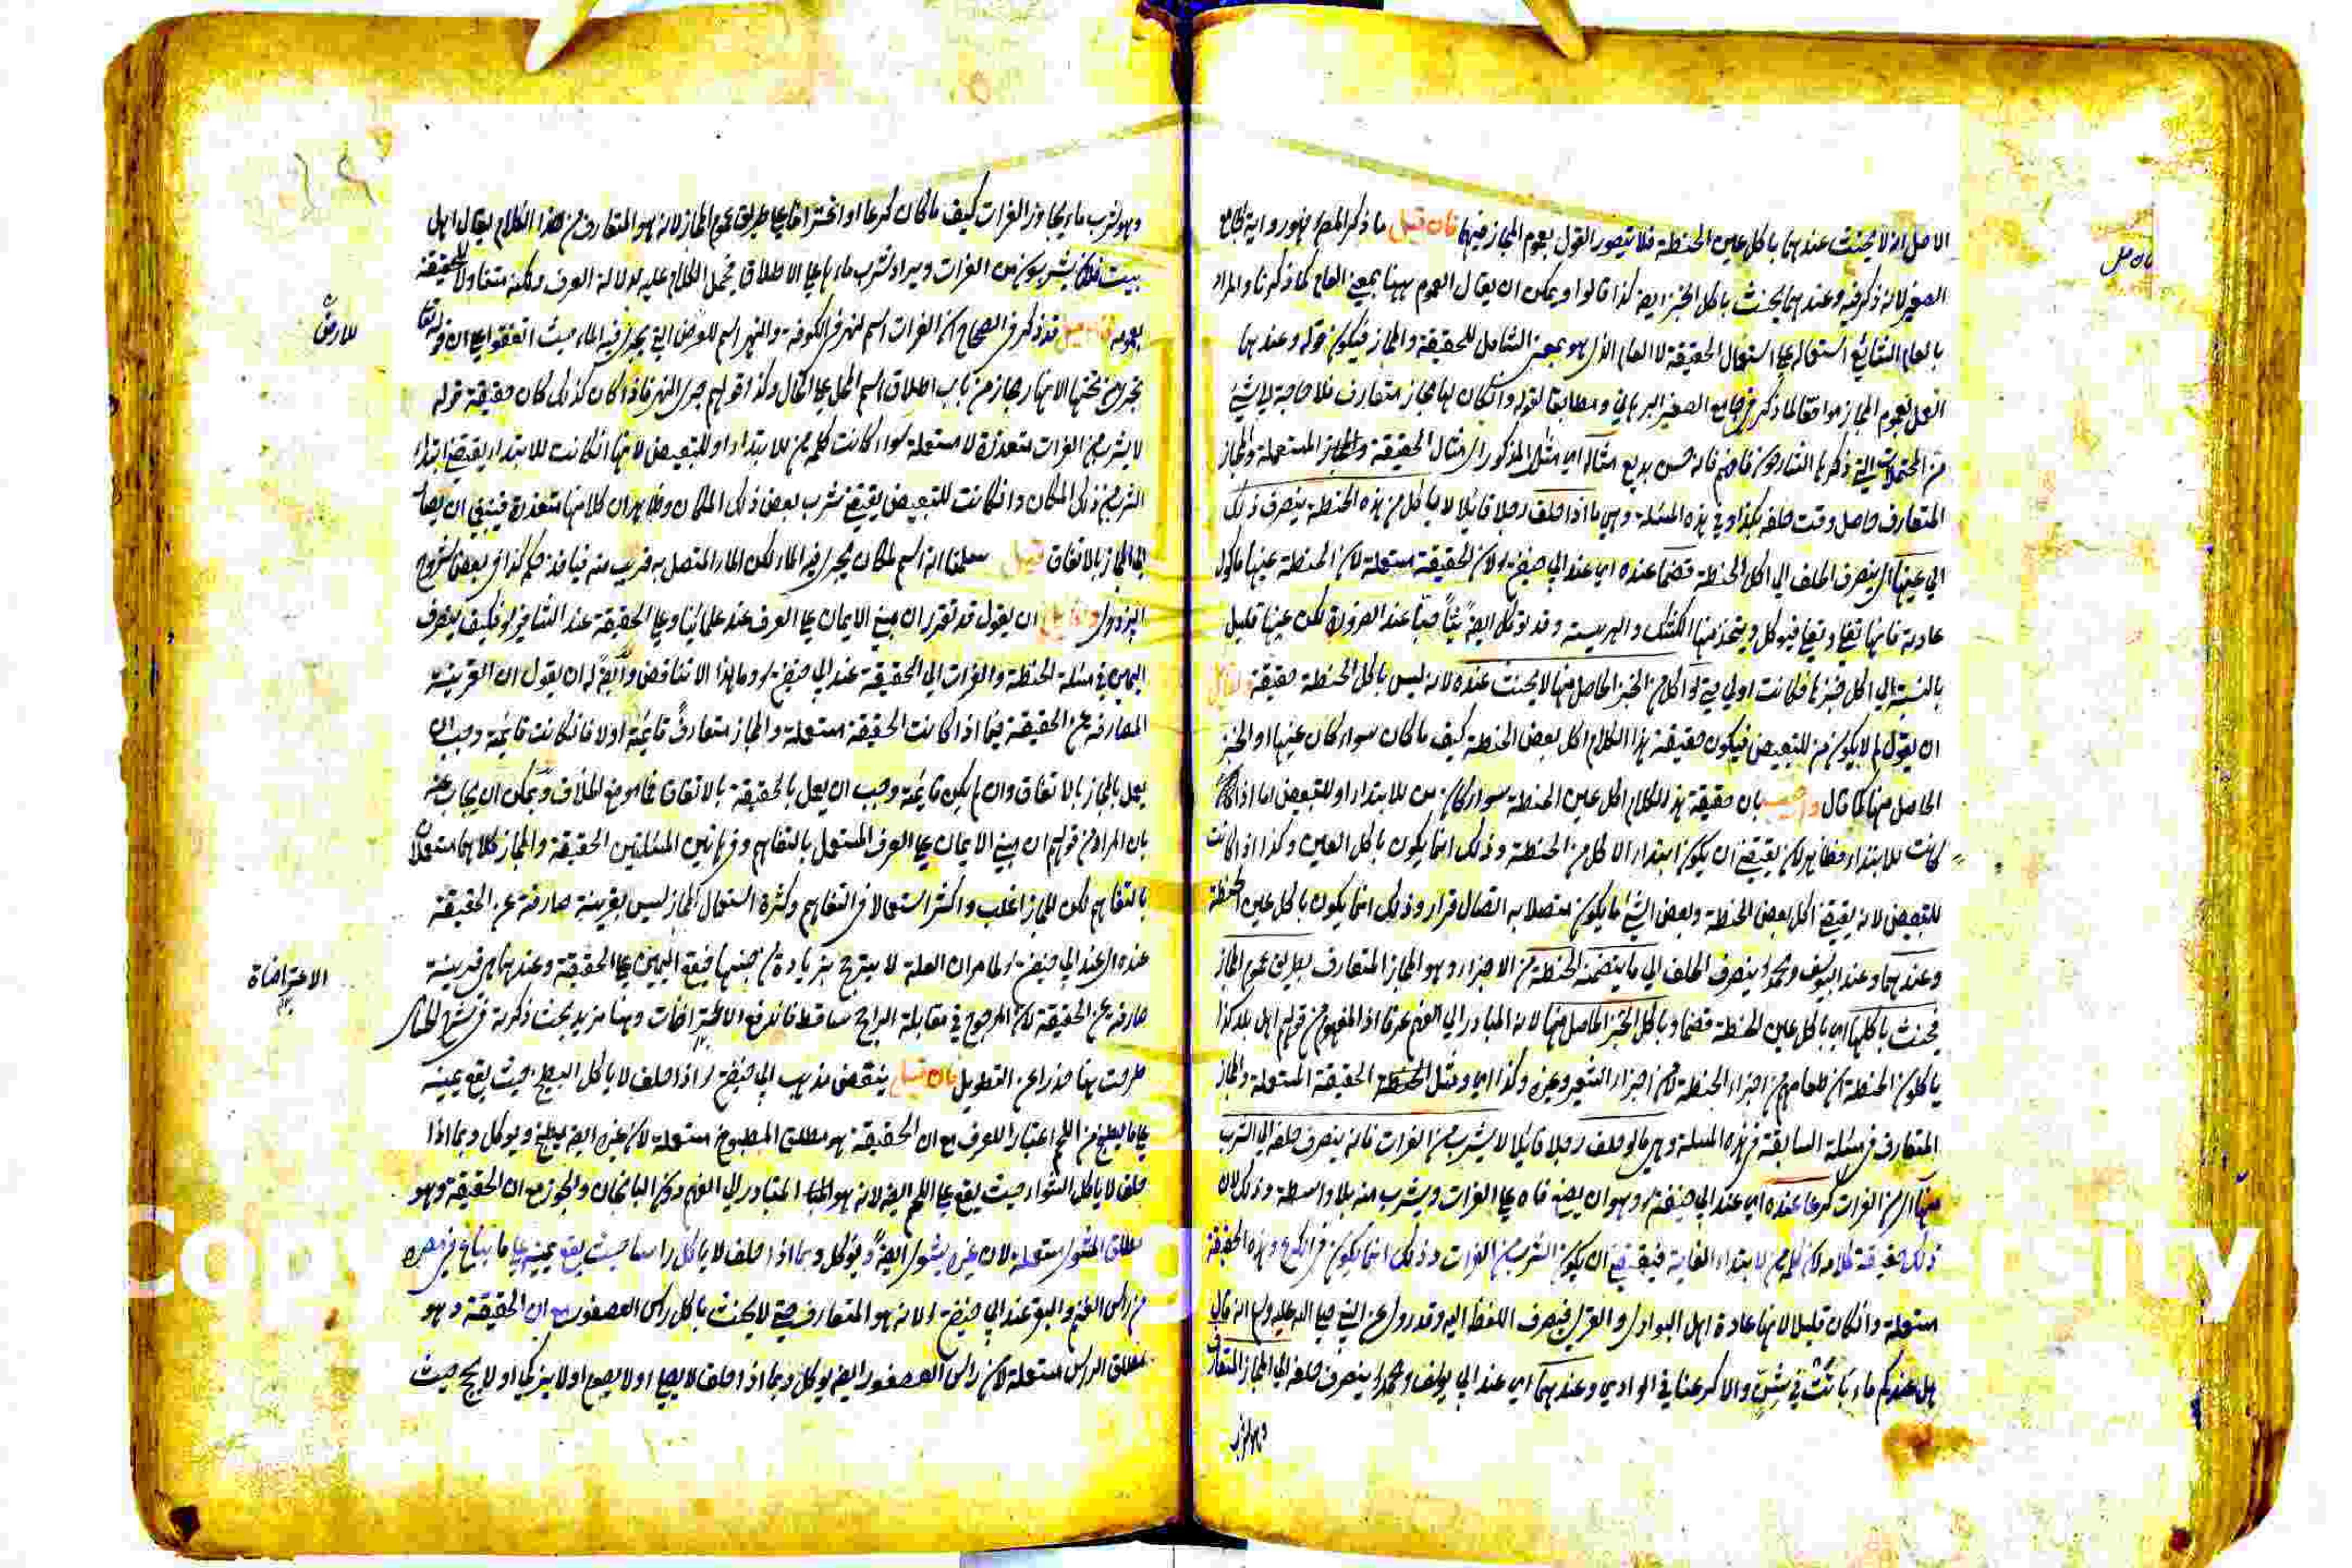 الاصل انه لا يحنث عندهما باكل عين الحنطة فلا يتصور القول بعموم المجاز فيها فان قيل ما ذكر المص فهو رواية الجامع
الصغير لانه ذكر فيه وعندهما يحنث باكل الخبز ايضا كذا قالوا ويمكن ان يقال العموم ههنا بمعنى العام كما ذكرنا والمراد
بالعام الشائع استعماله على استعمال الحقيقة لا العام الذى هو بمعنى الشامل للحقيقة والمجاز فيكون قوله وعندهما
العمل بعموم المجاز موافقا لما ذكر فى جامع الصغير البرهانى ومطابقا لقوله وان كان لها مجاز متعارف فلا حاجة الى شئ
من المحتملات التى ذكرها الشارحون فافهم فانه حسن بديع مثاله اى مثال المذكور اى مثال الحقيقة المستعملة والمجاز
المتعارف حاصل وقت حلفه بكذا وفى هذه المسئلة وهى ما اذا حلف رجلا قائلا لا ياكل من هذه الحنطة ينصرف ذلك
الى عينها اى ينصرف الحلف الى اكل الحنطة قضما عنده اى عند ابى حنيفة لان الحقيقة مستعملة لان الحنطة عينها ماكول
عادية فانها تغلى وتقلى فيؤكل ويتخذ منها الكشك والهريسة وقد تؤكل ايضا نيا حبا عند الضرورة لكن عينها قليل
بالنسبة الى اكل خبزها فكانت اولى حتى لو اكل من الخبز الحاصل منها لا يحنث عنده لانه ليس باكل الحنطة حقيقة
ان يقول لم لا يكون من للتبعيض فيكون حقيقة هذا الكلام اكل بعض الحنطة كيف ما كان سواء كان عينها او الخبز
الحاصل منها كما قال واجيب بان حقيقة هذا الكلام اكل عين الحنطة سواء كان من للابتداء او للتبعيض اما اذا
كانت للابتداء فظاهر لانه يقتضى ان يكون ابتداء الاكل من الحنطة وذلك انما يكون باكل العين وكذا اذا كانت
للتبعيض لانه يقتضى اكل بعض الحنطة وبعض الشئ ما يكون متصلا به اتصال قرار وذلك انما يكون باكل عين الحنطة
وعندهما وعند ابى يوسف ومحمد ينصرف الحلف الى ما يتضمنه الحنطة من الاجزاء وهو المجاز المتعارف بطريق عموم المجاز
فيحنث باكلها اى باكل عين الحنطة قضما وباكل الخبز الحاصل منها لانه المتبادر الى الفهم عرفا اذ المفهوم من قولهم اهل بلد كذا
ياكلون الحنطة ان طعامهم من اجزاء الحنطة لا من اجزاء الشعير وغيره وكذا اى ومثل الحنطة الحقيقة المستعملة والمجاز
المتعارف فى مسئلة السابقة فى هذه المسئلة وهى ما لو حلف رجلا قائلا لا يشرب من الفرات فانه ينصرف حلفه الى الشرب
منها اى من الفرات كرعا عنده اى عند ابى حنيفة وهو ان يضع فاه على الفرات ويشرب منه بلا واسطة وذلك لان
ذلك حقيقة كلامه لان كلمة من لابتداء الغاية فيقتضى ان يكون الشرب من الفرات وذلك انما يكون فى الكرع وهذه الحقيقة
مستعملة وان كان قليلا لانها عادة اهل البوادى والقرى فيصرف اللفظ اليه وقد روى عن النبى صلى الله عليه وسلم انه قال
هل عندكم ماء بات فى شن والا كرعنا فى الوادى وعندهما اى عند ابى يوسف ومحمد ينصرف حلفه الى المجاز المتعارف
وهو شرب
وهو شرب ماء يجاوز الفرات كيف ما كان كرعا او اغترافا على طريق عموم المجاز لانه هو المتعارف من هذا الكلام يقال اهل
بيت فلان يشربون من الفرات ويراد شرب ماءها على الاطلاق فيحمل الكلام عليه لدلالة العرف ولكنه متناولا للحقيقة
بعمومه فان قيل قد ذكر فى الصحاح ان الفرات اسم لنهر فى الكوفة والنهر اسم للعرض التى يجرى فيه الماء حيث اتفقوا على ان قوله تعالى
تجرى من تحتها الانهار مجاز من باب اطلاق اسم المحل على الحال وكذا قولهم جرى النهر فاذا كان كذلك كان حقيقة قوله
لا يشرب من الفرات متعذرة لا مستعملة سواء كانت كلمة من للابتداء او للتبعيض لانها ان كانت للابتداء يقتضى ابتداء
الشرب من ذلك المكان وان كانت للتبعيض يقتضى شرب بعض ذلك المكان وظاهر ان كلا منها متعذرة فينبغى ان يصار
الى المجاز بالاتفاق قيل سلمنا انه اسم لمكان يجرى فيه الماء لكن الماء المتصل به قريب منه فياخذ حكمه كذا فى بعض شروح
البزدوى ولقائل ان يقول قد تقرر ان مبنى الايمان على العرف عند علمائنا وعلى الحقيقة عند الشافعى فكيف ينصرف
اليمين فى مسئلة الحنطة والفرات الى الحقيقة عند ابى حنيفة وما هذا الا تناقض وايضا له ان يقول ان القرينة
الصارفة عن الحقيقة فيما اذا كانت الحقيقة مستعملة والمجاز متعارفا قائمة اولا فان كانت قائمة وجب ان
يعمل بالمجاز بالاتفاق وان لم يكن قائمة وجب ان يعمل بالحقيقة بالاتفاق فما موضع الخلاف ويمكن ان يجاب عنه
بان المراد من قولهم ان مبنى الايمان على العرف المستعمل بالتفاهم وفى هاتين المسئلتين الحقيقة والمجاز كلاهما مستعملان
بالتفاهم لكن المجاز اغلب واكثر استعمالا فى التفاهم وكثرة استعمال المجاز ليس بقرينة صارفة عن الحقيقة
عنده اى عند ابى حنيفة لما مر ان العلة لا يترجح بزيادة من جنسها فيقع اليمين على الحقيقة وعندهما هى قرينة
صارفة عن الحقيقة لان المرجوح فى مقابلة الراجح ساقط فاندفع الاعتراضات وههنا مزيد بحث ذكرته فى شرح المغنى
طرحت هنا حذرا عن التطويل فان قيل ينتقض مذهب ابى حنيفة اذا حلف لا ياكل الطبيخ حيث يقع يمينه
على ما يطبخ من اللحم اعتبارا للعرف مع ان الحقيقة هو مطلق المطبوخ مستعملة لان غيره ايضا يطبخ ويؤكل وبما اذا
حلف لا ياكل الشواء حيث يقع على اللحم ايضا لانه هو المتبادر الى الفهم دون الباذنجان والجزر مع ان الحقيقة وهو
مطلق المشوى مستعملة لان غيره يشوى ايضا ويؤكل وبما اذا حلف لا ياكل راسا حيث يقع يمينه على ما يباع فى مصره
من راس الغنم والبقر عند ابى حنيفة لانه هو المتعارف حتى لا يحنث باكل راس العصفور مع ان الحقيقة وهو
مطلق الراس مستعملة لان راس العصفور ايضا يؤكل وبما اذا حلف لا يصلى او لا يصوم او لا يزكى او لا يحج حيث
للارض
الاعتراضاة
Copy
sity